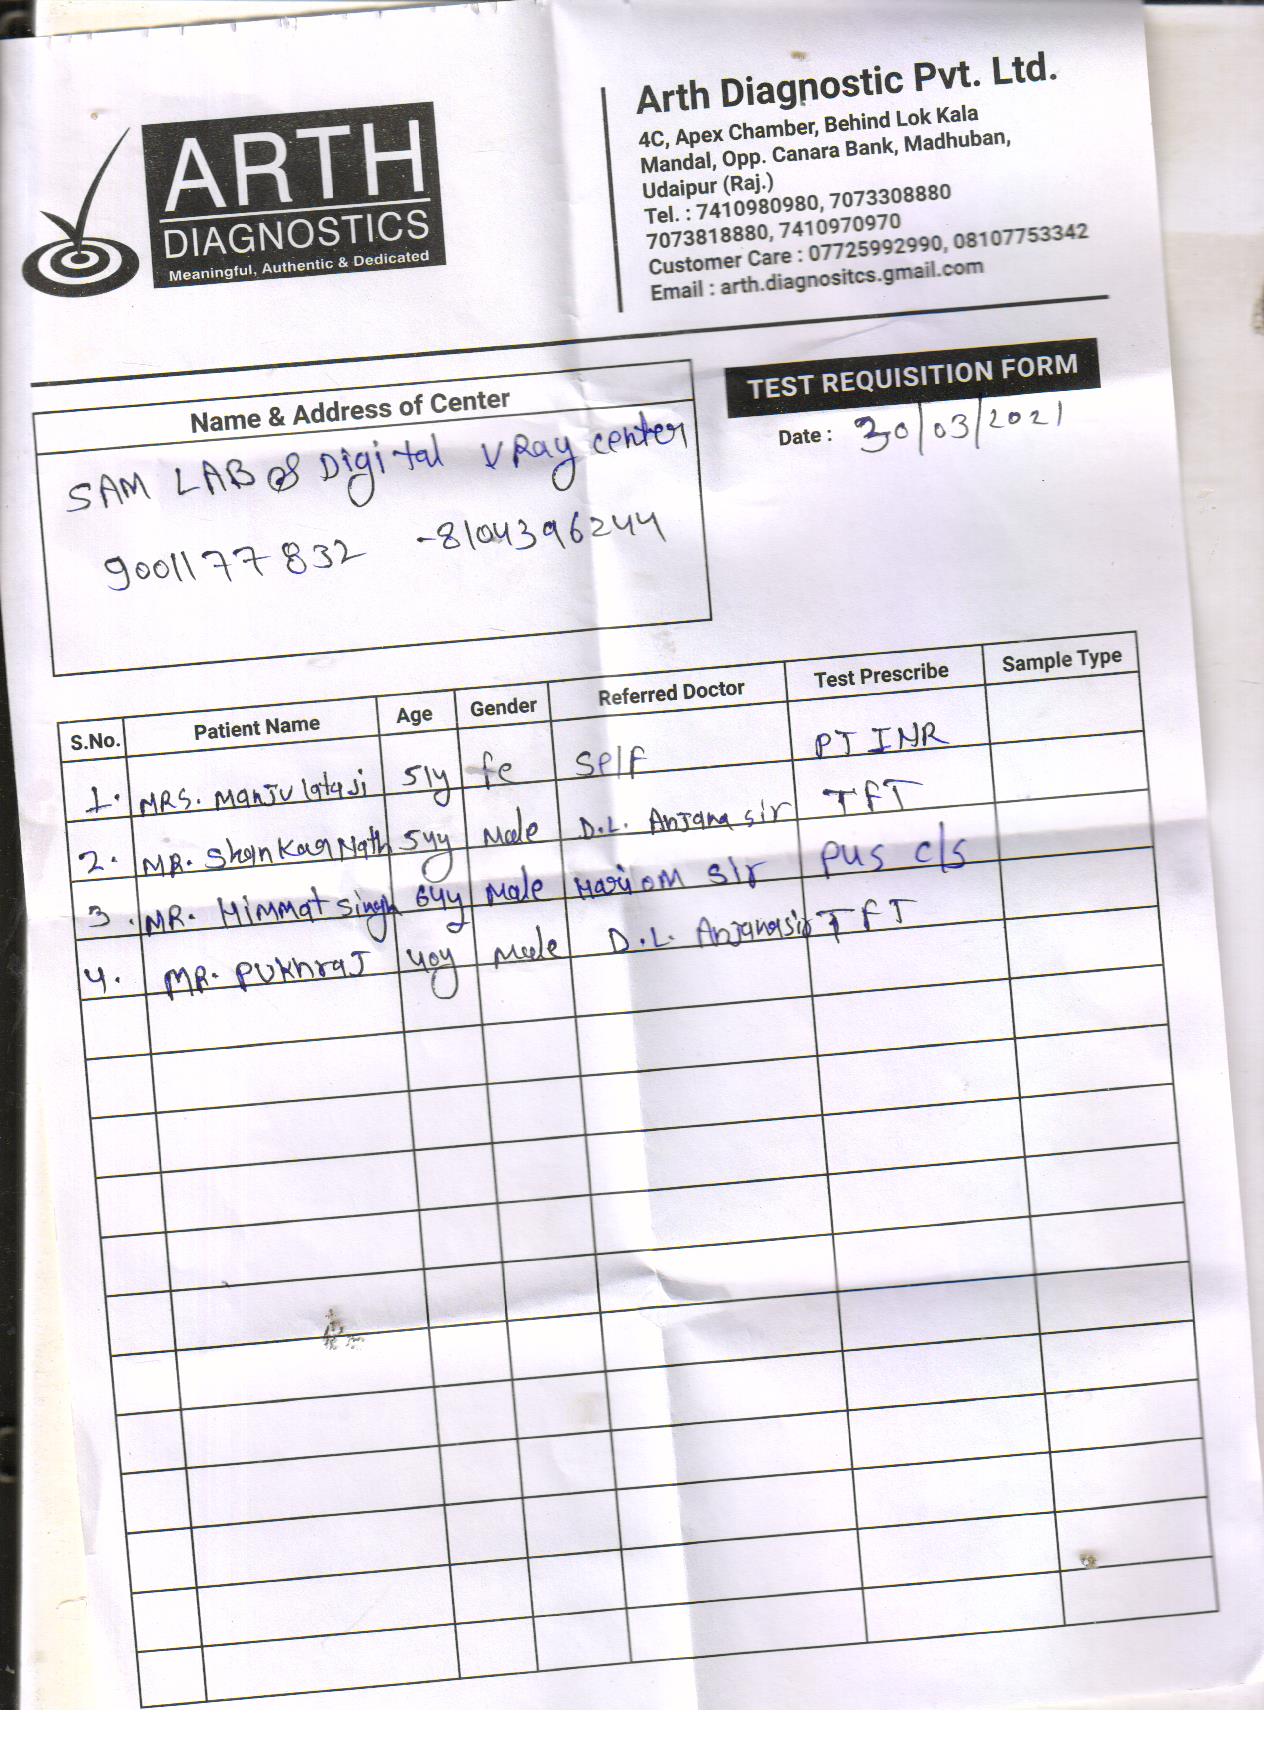 ARTH
DIAGNOSTICS
Meaningful, Authentic & Dedicated
Arth Diagnostic Pvt. Ltd.
4C, Apex Chamber, Behind Lok Kala
Mandal, Opp. Canara Bank, Madhuban,
Udaipur (Raj.)
Tel. : 7410980980, 7073308880
7073818880, 7410970970
Customer Care : 07725992990, 08107753342
Email : arth.diagnositcs.gmail.com
Name & Address of Center
SAM LAB & Digital XRay center
9001177832 -8104396244
TEST REQUISITION FORM
Date : 30/03/2021
S.No. Patient Name Age Gender Referred Doctor Test Prescribe Sample Type
1. MRS. Manju lataji 51y fe Self PT INR
2. MR. Shankar Nath 54y Male D.L. Anjana sir TFT
3. MR. Himmat singh 64y Male Hariom sir Pus c/s
4. MR. Pukhraj 40y Male D.L. Anjana sir TFT